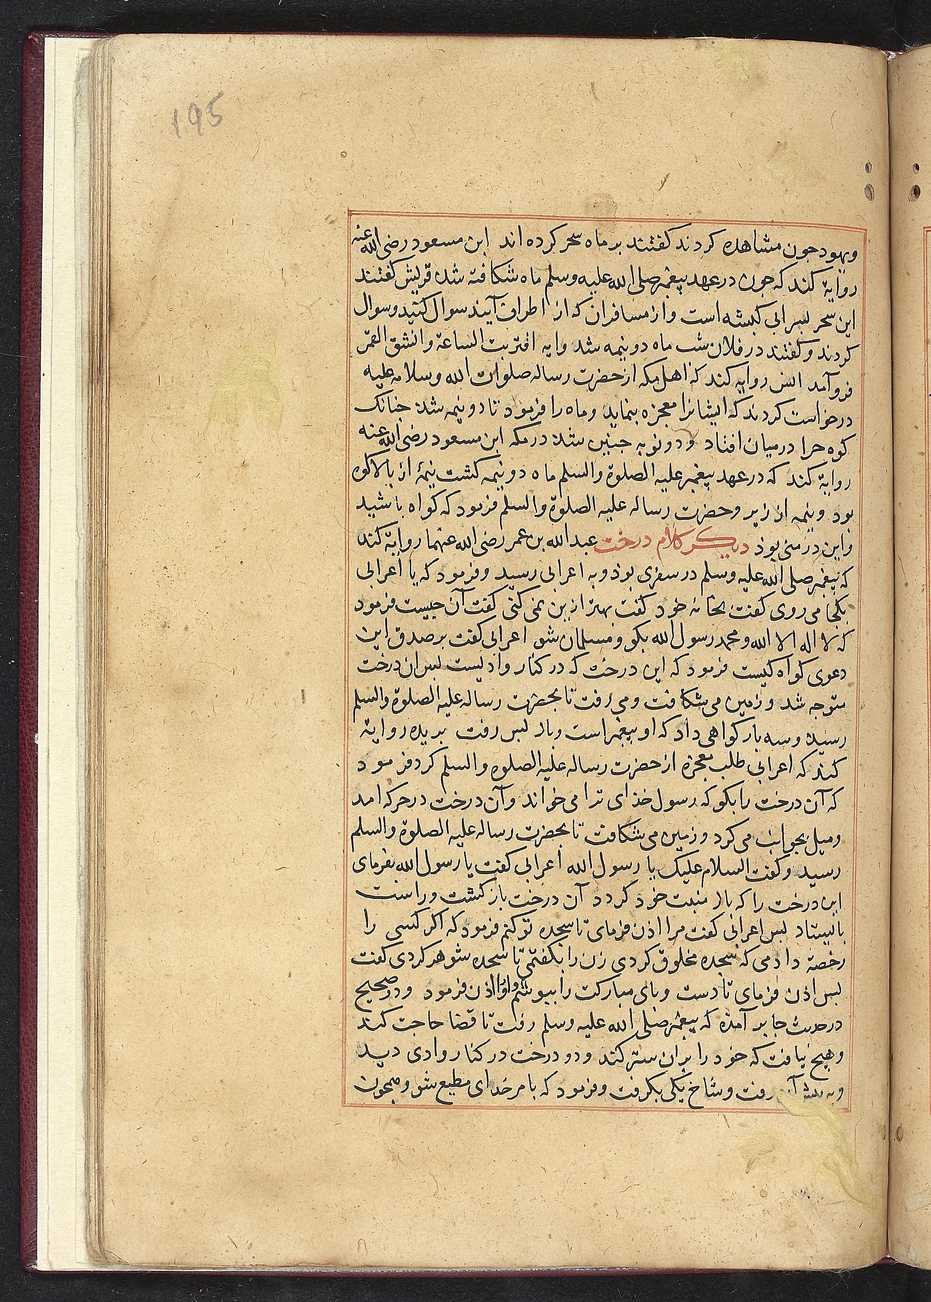 195
ویهود چون مشاهده کردند کفتند بر ماه سحر کرده اند ابن مسعود رضی الله عنه
روایة کند که چون در عهد پیغمبر صلی الله علیه وسلم ماه شکافته شد قریش کفتند
این سحر پسر ابی کبشه است واز مسافران که از اطراف آیند سوال کنید وسوال
کردند وکفتند در فلان شب ماه دو نیمه شد وایه اقتربت الساعة وانشق القمر
فروآمد انس روایه کند که اهل مکه از حضرت رساله صلوات الله وسلامه علیه
درخواست کردند که ایشانرا معجزه بنماید وماه را فرمود تا دو نیمه شد چنانک
کوه حرا در میان افتاد ودو نوبه چنین شد در مکه ابن مسعود رضی الله عنه
روایة کند که در عهد پیغمبر علیه الصلوة والسلم ماه دو نیمه کشت نیمۀ از بالا کوه
بود ونیمه از زیر وحضرت رساله علیه الصلوة والسلم فرمود که کواه باشید
واین در منی بود دیکر کلام درخت عبد الله بن عمر رضی الله عنهما روایة کند
که پیغمبر صلی الله علیه وسلم در سفری بود وبه اعرابی رسید وفرمود که یا اعرابی
بکجا می روی کفت بخانه خود کفت بهتر ازین نمی کنی کفت آن چیست فرمود
که لا اله الا الله ومحمد رسول الله بکو ومسلمان شو اعرابی کفت بر صدق این
دعوی کواه کیست فرمود که این درخت که در کنار وادیست پس ان درخت
متوجه شد وزمین می شکافت ومی رفت تا بحضرت رساله علیه الصلوة والسلم
رسید وسه بار کواهی داد که او پیغمبر است وباز پس رفت بریده روایة
کند که اعرابی طلب معجزه از حضرت رساله علیه الصلوه والسلم کرد فرمود
که آن درخت را بکو که رسول خدای ترا می خواند وآن درخت در حرکه امد
ومیل بجوانب می کرد وزمین می شکافت تا بحضرت رساله علیه الصلوة والسلم
رسید وکفت السلام علیک یا رسول الله اعرابی کفت یا رسول الله بفرمای
این درخت را که باز منبت خود کردد آن درخت باز کشت وراست
بایستاد پس اعرابی کفت مرا اذن فرمای تا سجده تو کنم فرمود که اکر کسی را
رخصة دادمی که سجده مخلوق کردی زن را بکفتمی تا سجده شوهر کردی کفت
پس اذن فرمای تا دست وپای مبارکت را ببوسم واورا اذن فرمود ودر صحیح
در حدیث جابر آمده که پیغمبر صلی الله علیه وسلم رفت تا قضا حاجت کند
وهیچ نیافت که خود را بران ستر کند ودو درخت در کنار وادی دید
رفت وشاخ یکی بکرفت وفرمود که بامر خدای مطیع شو وهمچون